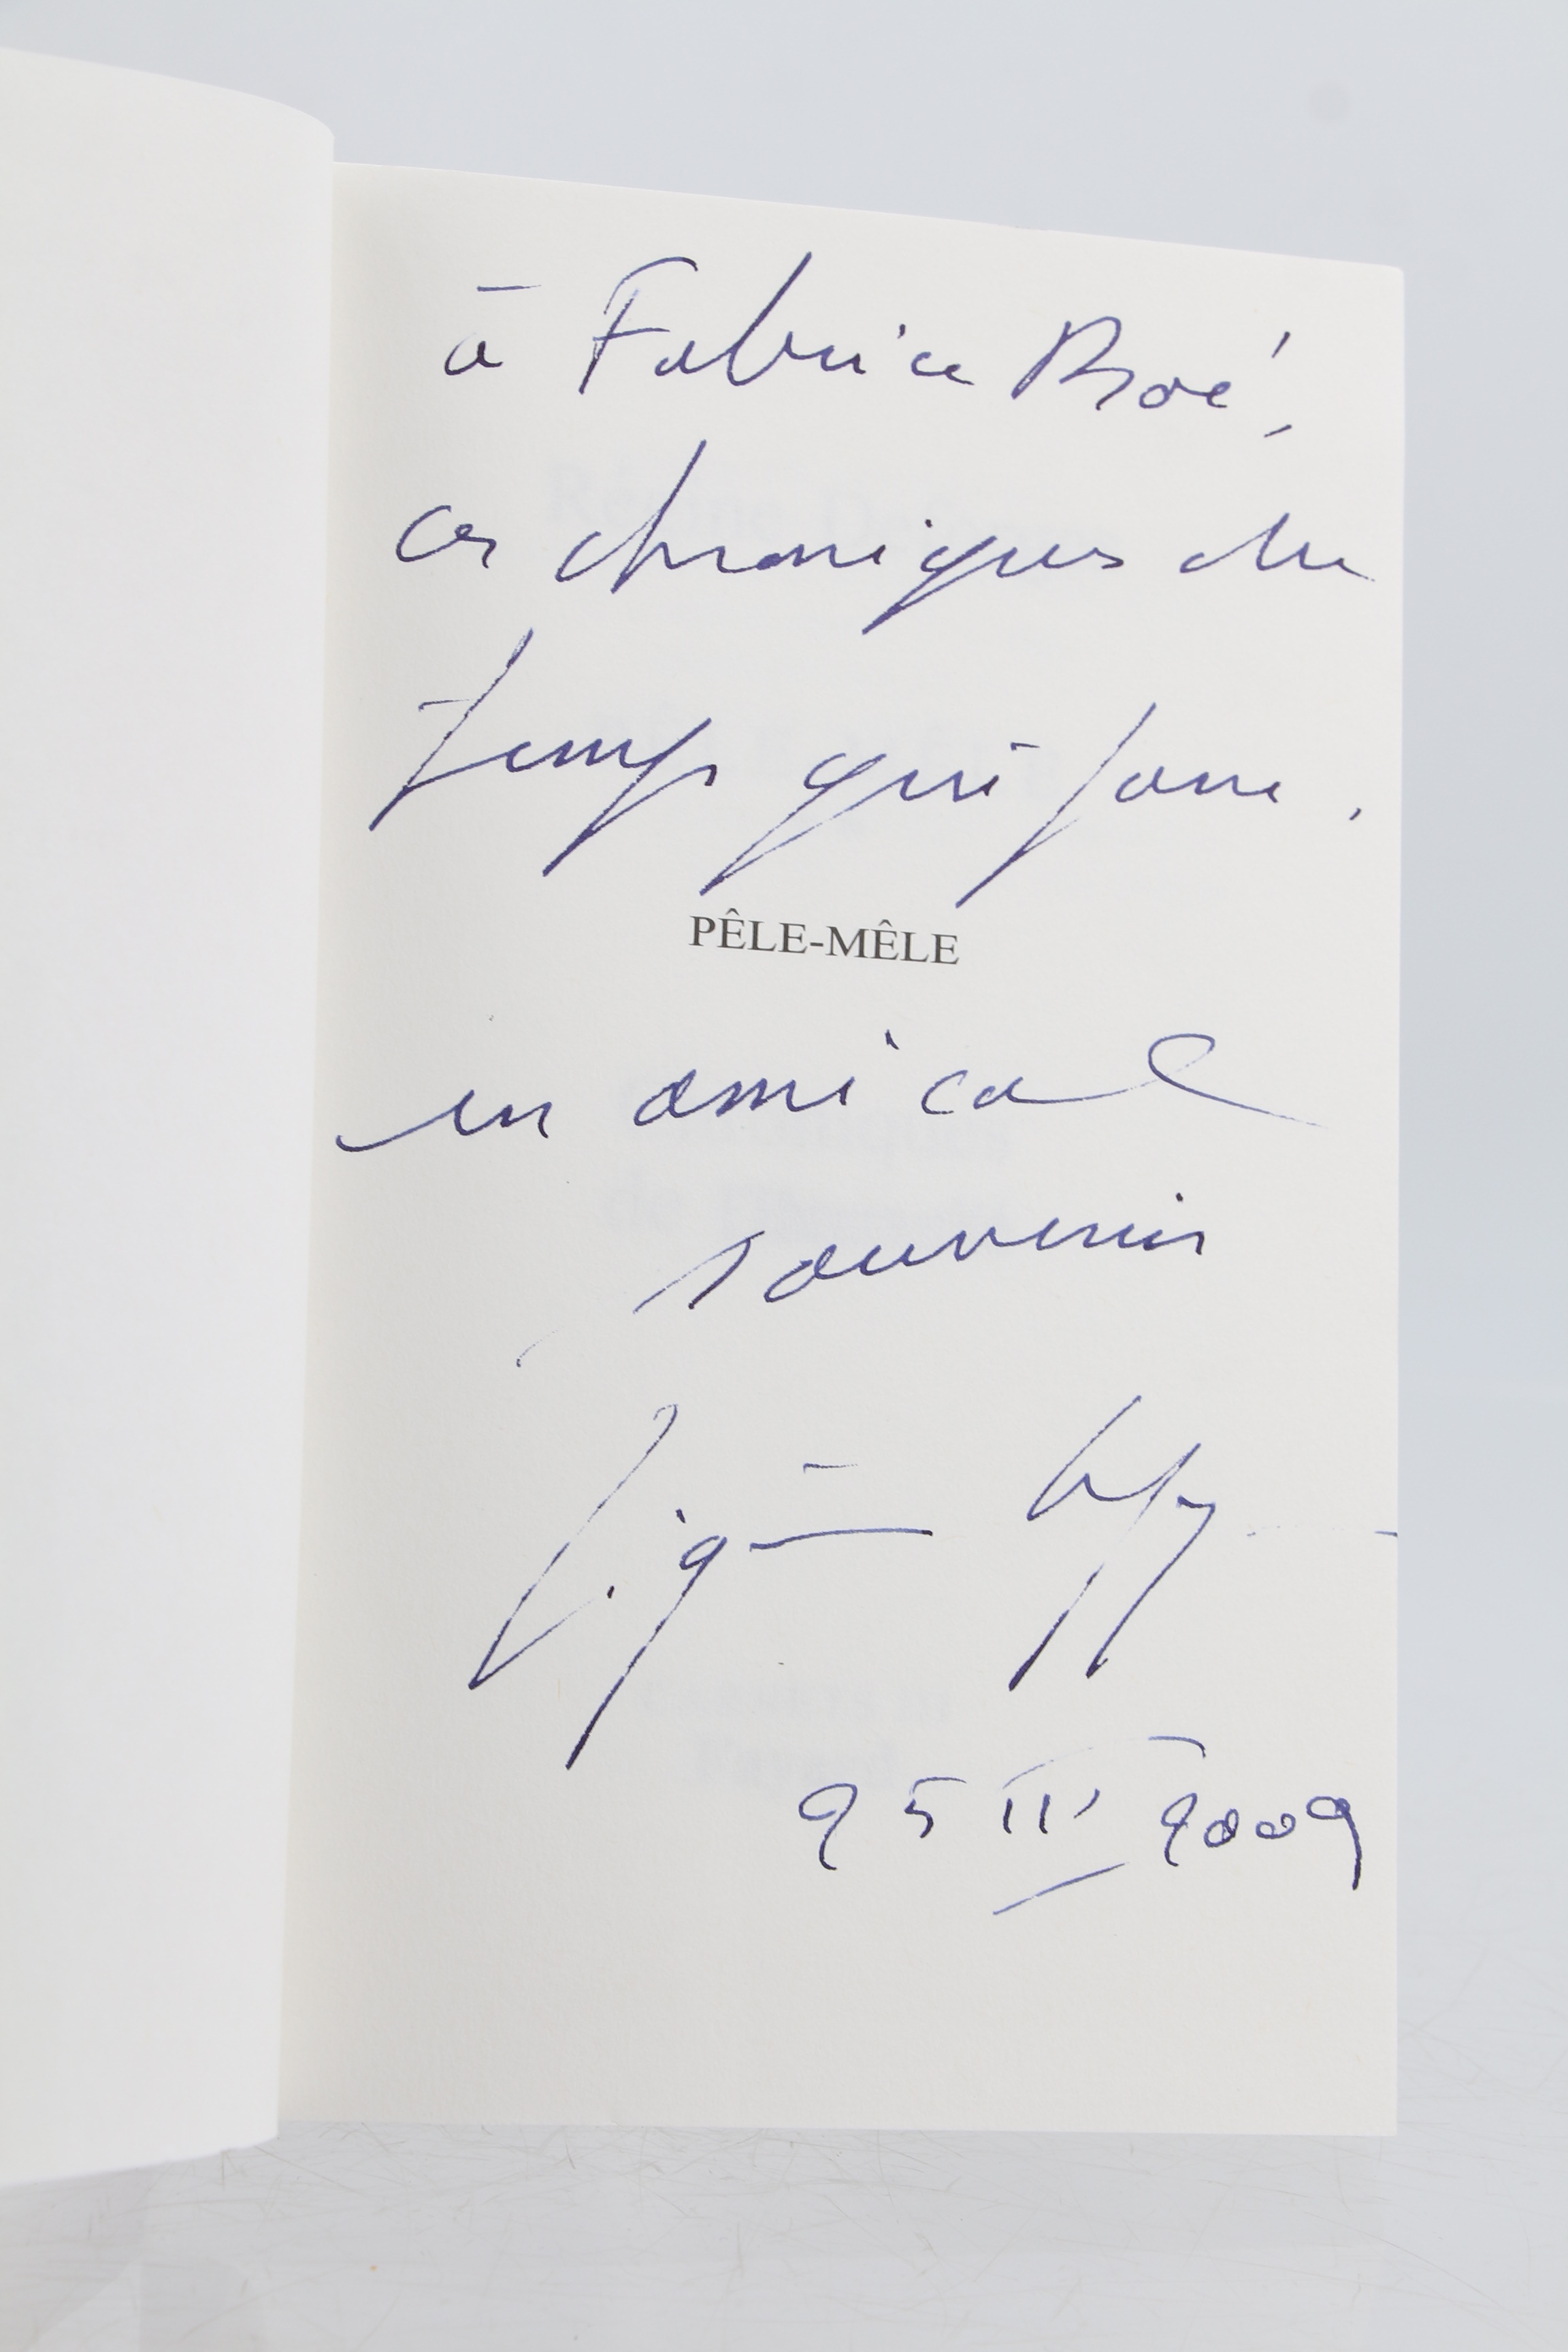 à Fabrice Roé,
ces chroniques du
temps qui passe,
PÊLE-MÊLE
en amical
souvenir
Régine Deforges
25 III 2009